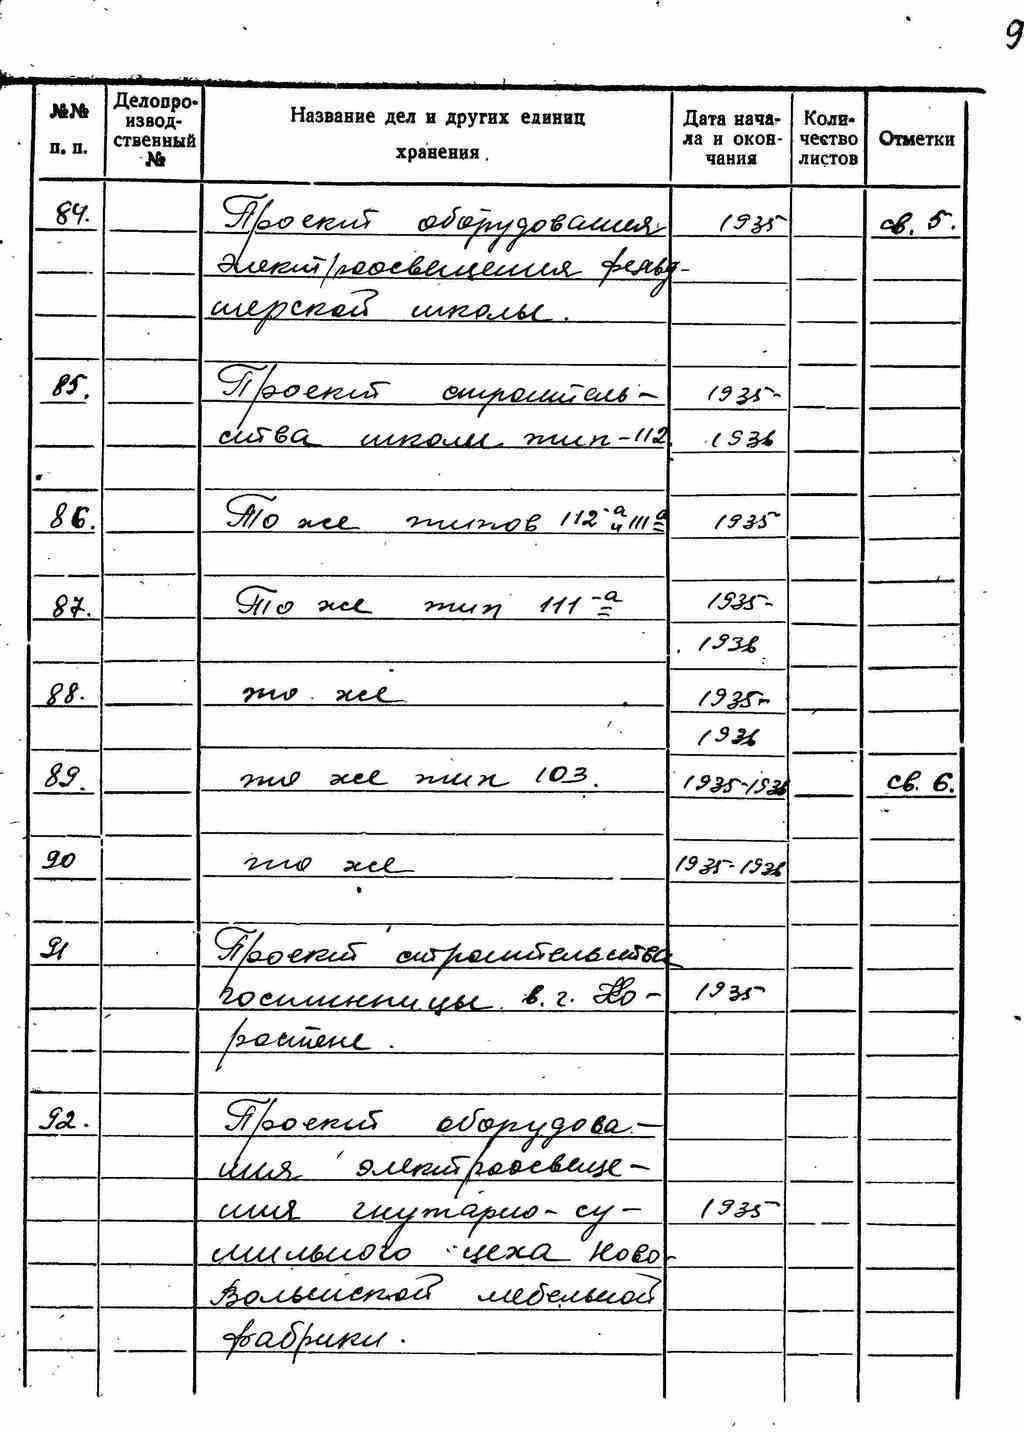 9
№№ п. п. Делопро-изводственный № Название дел и других единиц хранения. Дата нача-ла и окон-чания Коли-чество листов Отметки
84. Проект оборудования 1935 св. 5.
электроосвещения фельд-
шерской школы.
85. Проект строитель- 1935-
ства школы тип-112 1936
86. То же типов 112-а и 111а 1935
87. То же тип 111-а 1935-
1936
88. то же 1935-
1936
89. то же тип 103. 1935-1936 св. 6.
90 то же 1935-1936
91 Проект строительства
гостинницы в г. Ко- 1935
ростене.
92. Проект оборудова-
ния электроосвеще-
ния гнутарно-су- 1935
шильного цеха Ново-
Волынской мебельной
фабрики.